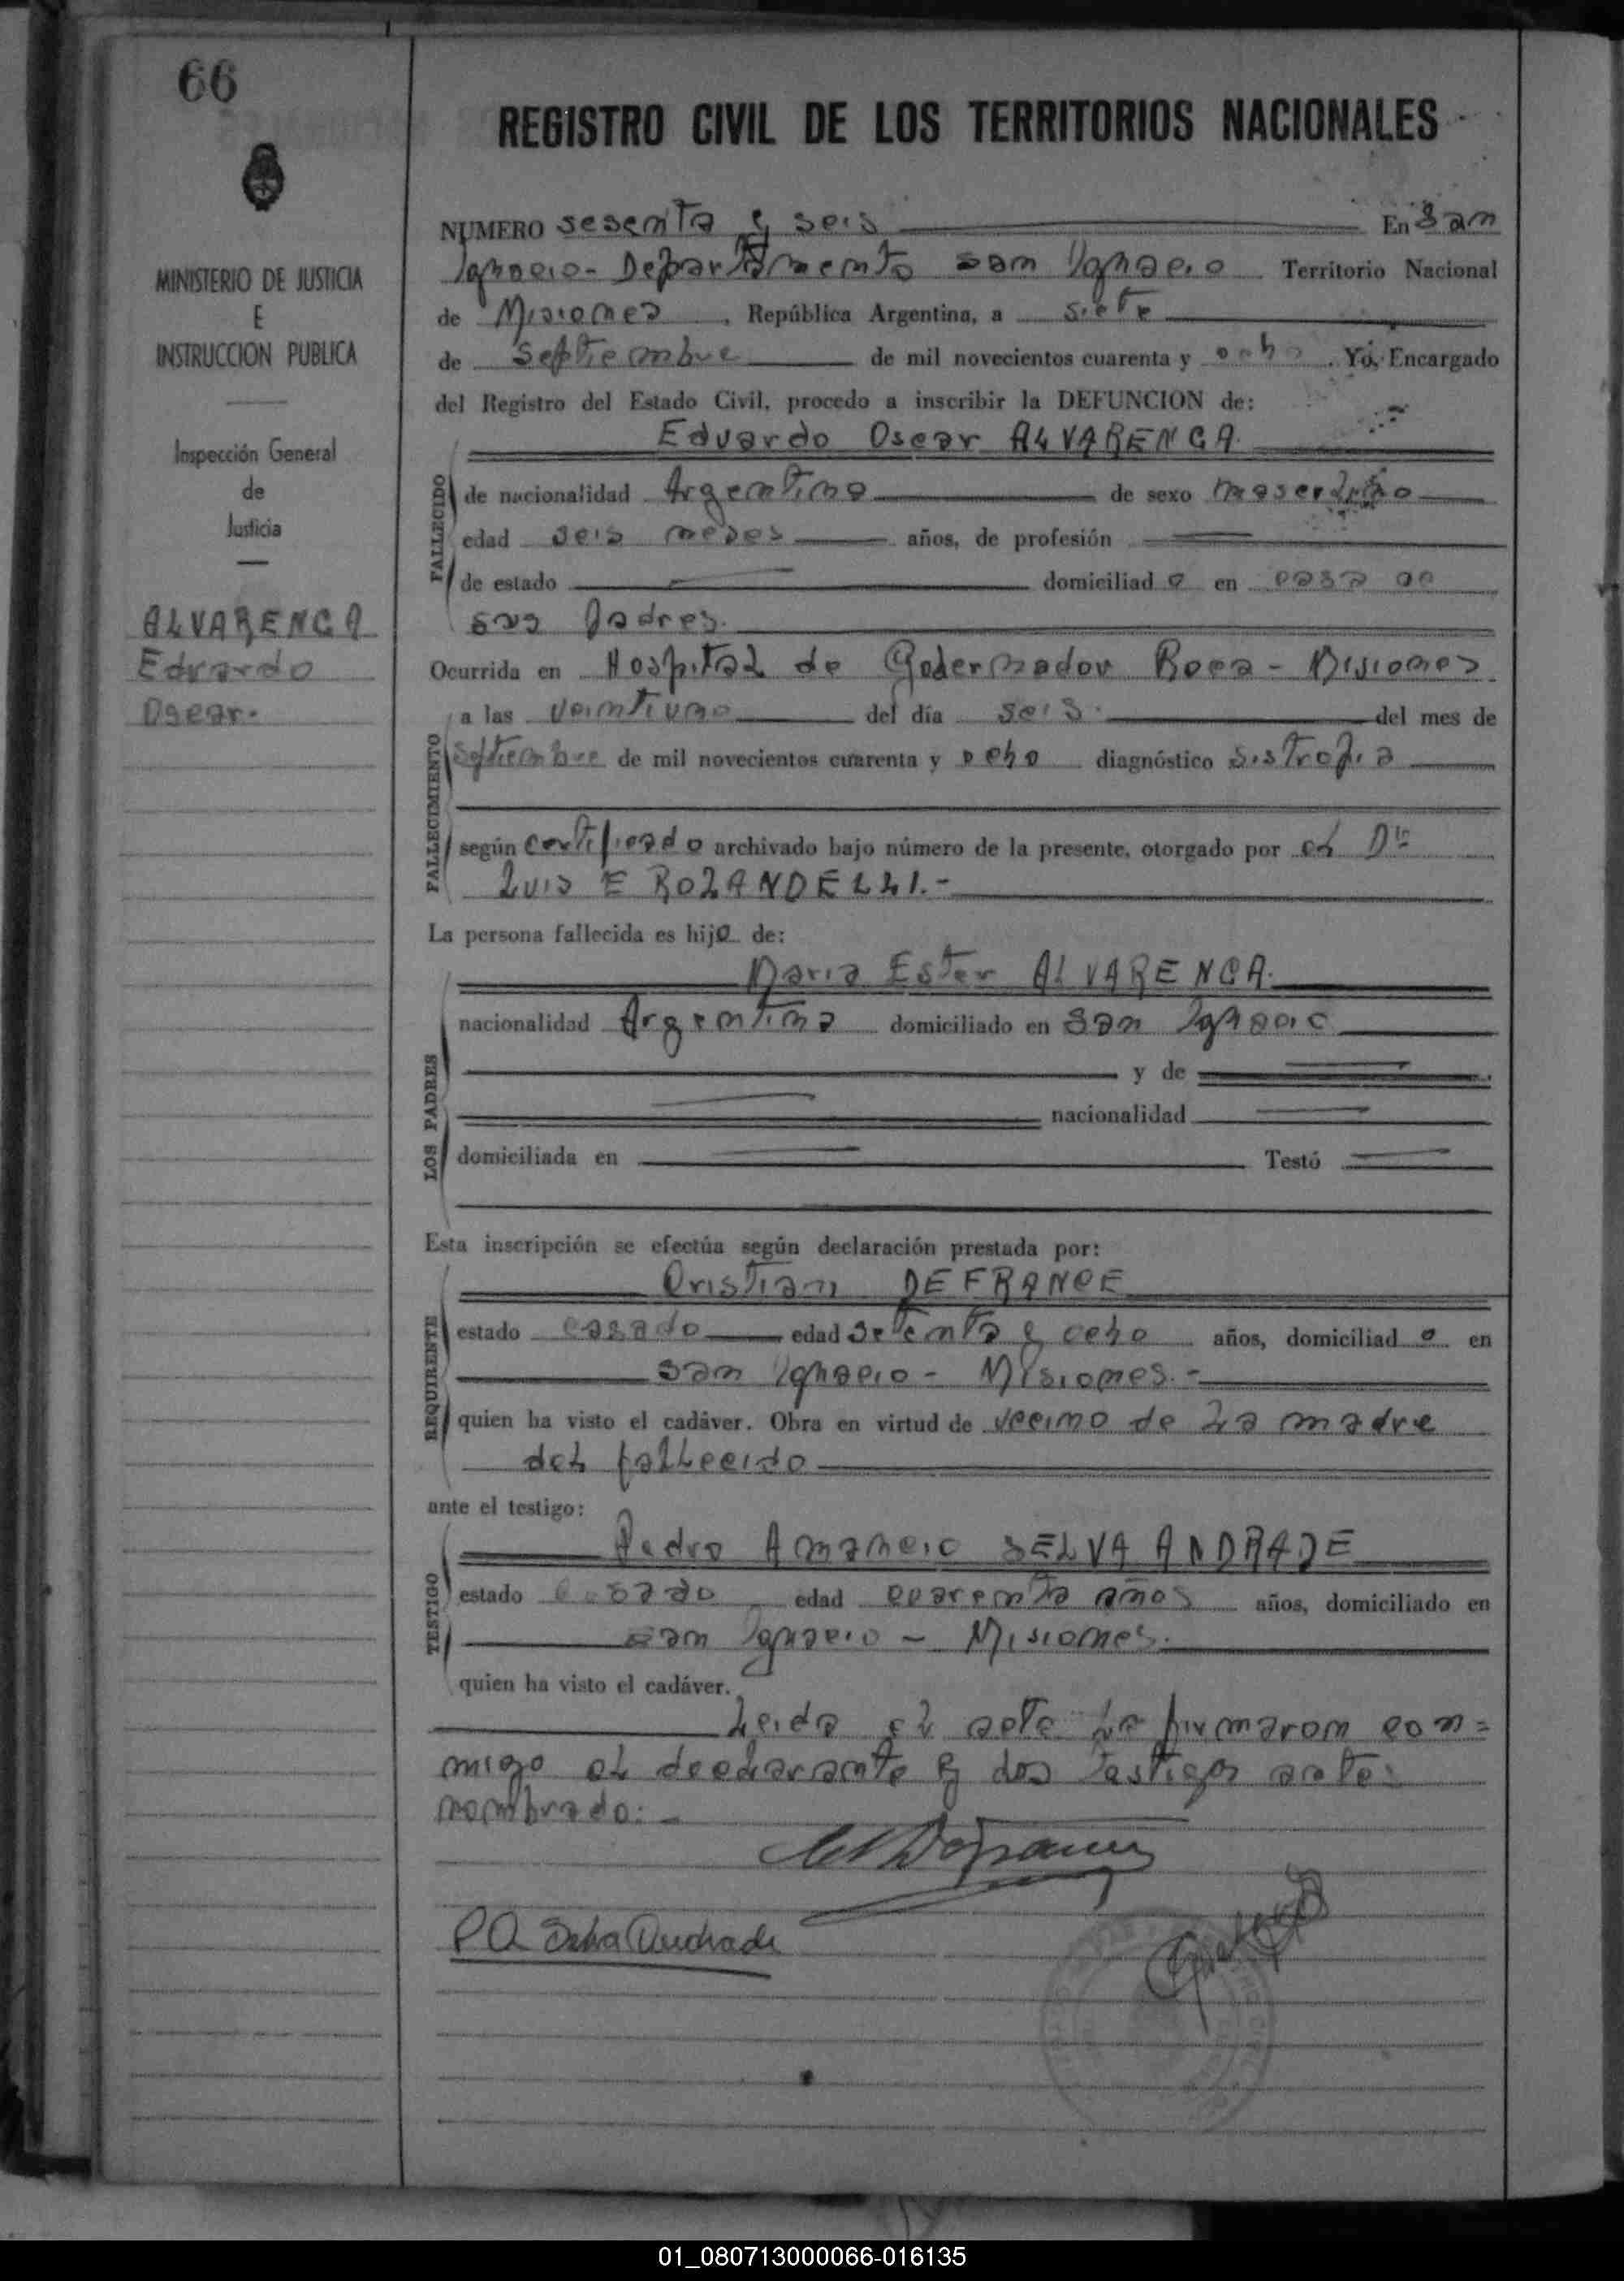 66
REGISTRO CIVIL DE LOS TERRITORIOS NACIONALES
MINISTERIO DE JUSTICIA
E
INSTRUCCION PUBLICA
Inspección General
de
Justicia
ALVARENGA
Eduardo
Oscar.
NUMERO sesenta y seis En San
Ignacio - Departamento San Ignacio Territorio Nacional
de Misiones, República Argentina, a siete
de Septiembre de mil novecientos cuarenta y ocho. Yo, Encargado
del Registro del Estado Civil, procedo a inscribir la DEFUNCION de:
Eduardo Oscar ALVARENGA.
FALLECIDO
de nacionalidad Argentina de sexo masculino
edad seis meses años, de profesión
de estado domiciliado en casa de
sus padres.
Ocurrida en Hospital de Gobernador Roca - Misiones
FALLECIMIENTO
a las veintiuno del día seis. del mes de
Septiembre de mil novecientos cuarenta y ocho diagnóstico sistrofia
según certificado archivado bajo número de la presente, otorgado por el Dr
Luis E ROLANDELLI.-
La persona fallecida es hijo de:
LOS PADRES
Maria Ester ALVARENGA.
nacionalidad Argentina domiciliado en San Ignacio
y de
nacionalidad
domiciliada en Testó
Esta inscripción se efectúa según declaración prestada por:
REQUIRENTE
Cristian DEFRANCE
estado casado edad setenta y ocho años, domiciliado en
San Ignacio - Misiones.-
quien ha visto el cadáver. Obra en virtud de vecino de la madre
del fallecido
ante el testigo:
TESTIGO
Pedro Amancio SELVA ANDRADE
estado casado edad cuarenta años años, domiciliado en
San Ignacio - Misiones.
quien ha visto el cadáver.
Leida el acta la firmaron con=
migo el declarante y dos testigos ante:
nombrado:-
P A Selva Andrade
01_080713000066-016135